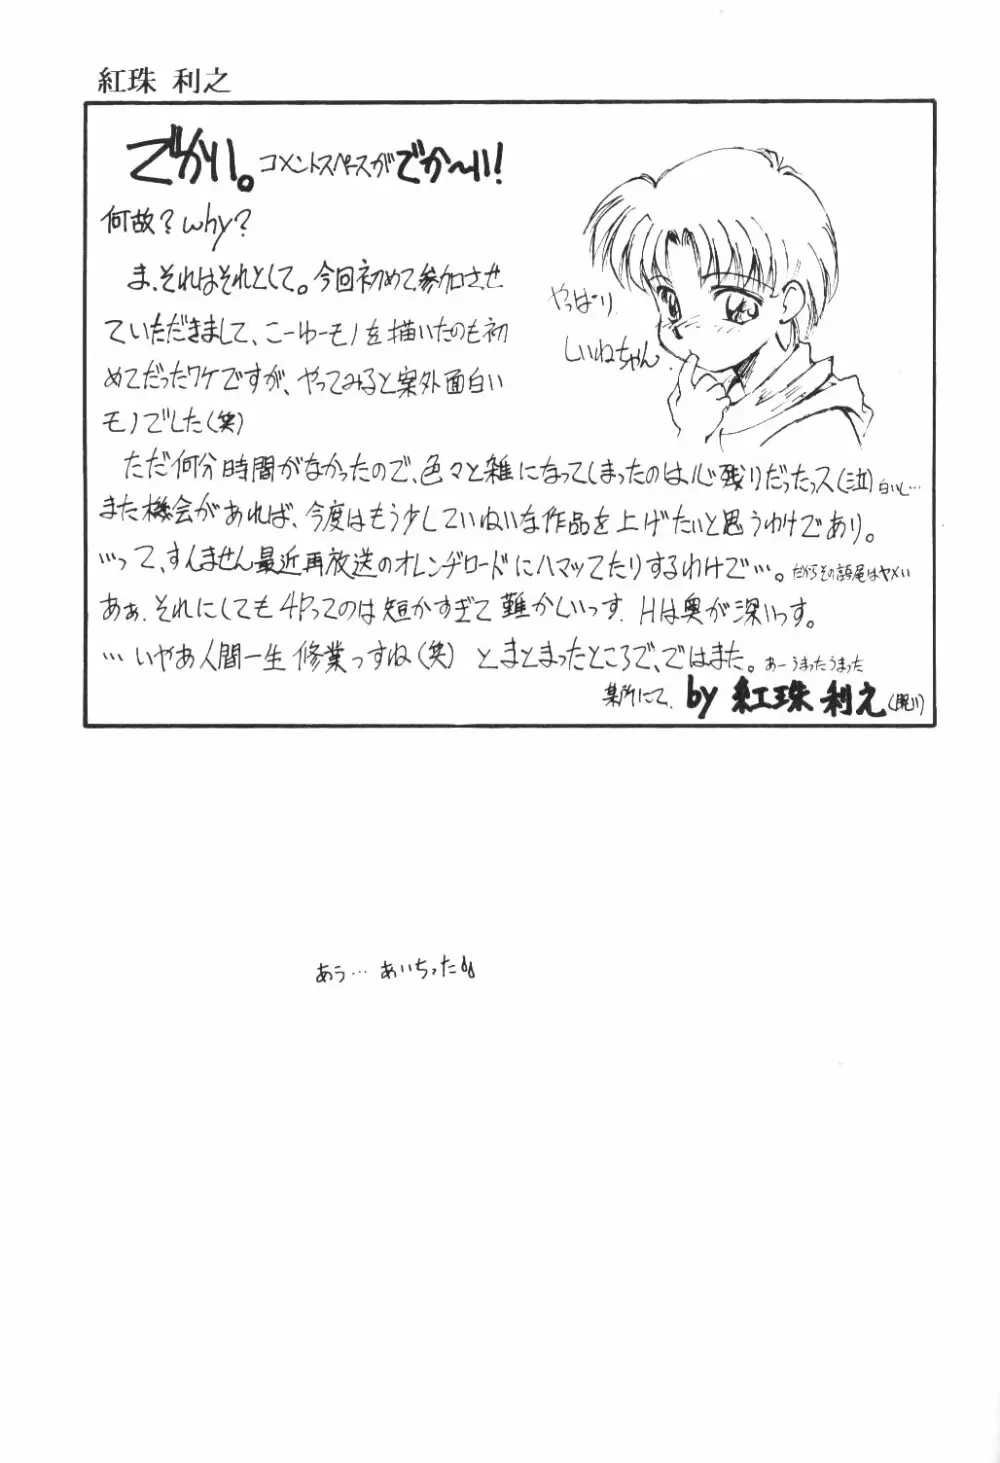 紅珠 利之
でかい。コメントスペースがでか〜い!
何故?why?
ま、それはそれとして。今回初めて参加させ
ていただきまして、こーゆーモノを描いたのも初
めてだったワケですが、やってみると案外面白い
モノでした(笑)
やっぱり
しいねちゃん
ただ何分時間がなかったので、色々と雑になってしまったのは心残りだったっス(泣)白いし…
また機会があれば、今度はもう少していねいな作品を上げたいと思うわけであり。
…って、すんません最近再放送のオレンヂロードにハマッてたりするわけで…。だからその語尾はヤメい
あぁ、それにしても4Pってのは短かすぎて難かしいっす。Hは奥が深いっす。
…いやあ人間一生修業っすね(笑) とまとまったところで、ではまた。あーうまったうまった
某所にて by 紅珠 利之
あう… あいちった